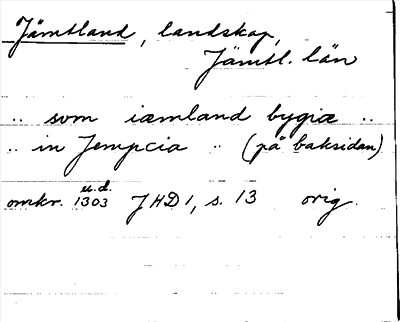 Jämtland, landskap,
Jämtl. län
.. som iæmland bygiæ ..
.. in Jempcia .. (på baksidan)
u.d.
omkr. 1303 JHD 1, s. 13 orig.